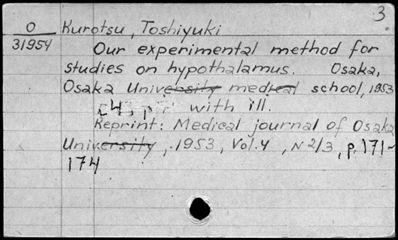 3
O Kurotsu, Toshiyuki
31954
Our experimental method for
studies on hypothalamus. Osaka,
Osaka University medical school, 1953
4, p. with ill.
Reprint: Medical journal of Osaka
University, 1953, Vol. 4, N 2/3, p. 171-
174